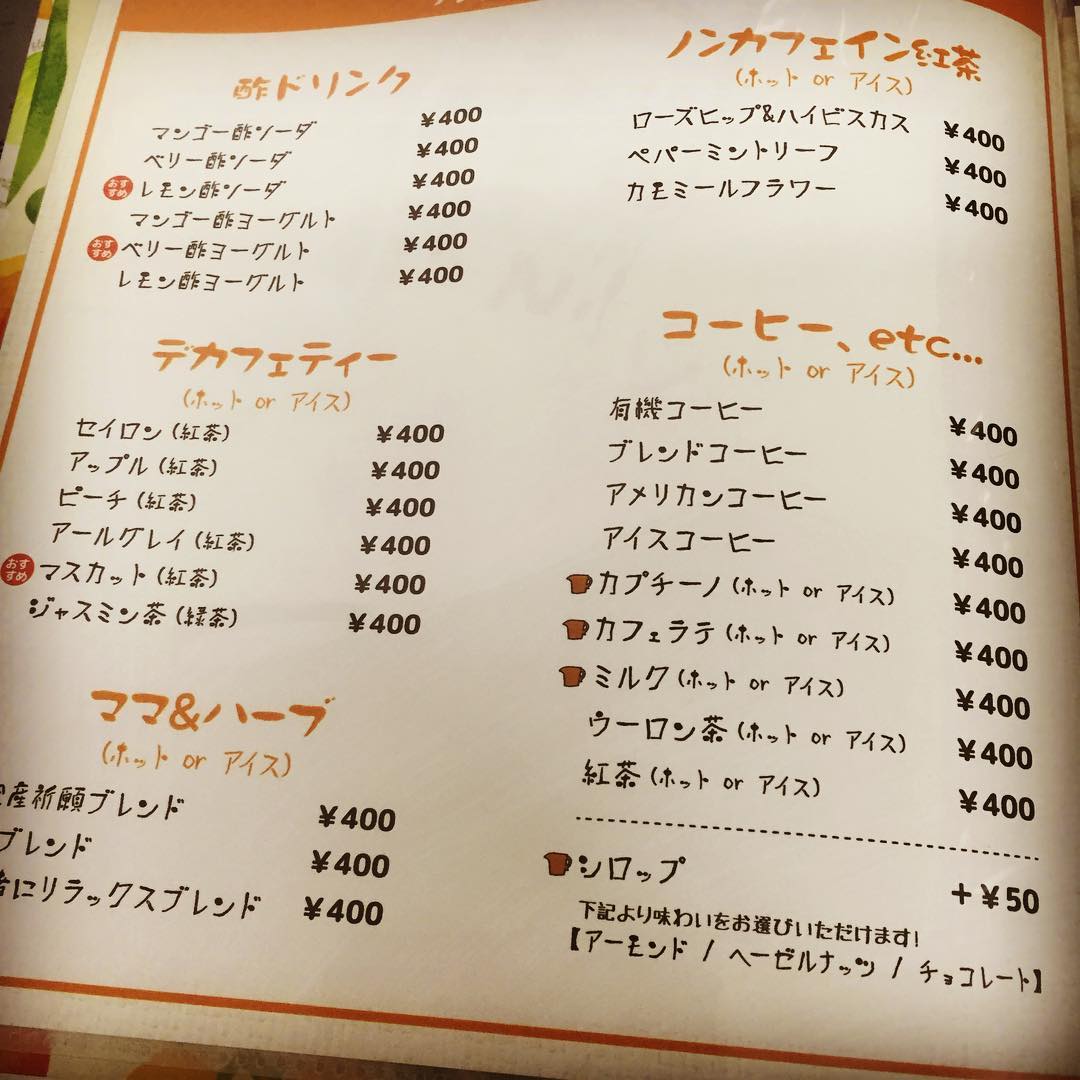 酢ドリンク
マンゴー酢ソーダ ¥400
ベリー酢ソーダ ¥400
おすすめ レモン酢ソーダ ¥400
マンゴー酢ヨーグルト ¥400
おすすめ ベリー酢ヨーグルト ¥400
レモン酢ヨーグルト ¥400
デカフェティー
(ホット or アイス)
セイロン (紅茶) ¥400
アップル (紅茶) ¥400
ピーチ (紅茶) ¥400
アールグレイ (紅茶) ¥400
おすすめ マスカット (紅茶) ¥400
ジャスミン茶 (緑茶) ¥400
ママ&ハーブ
(ホット or アイス)
産祈願ブレンド ¥400
ブレンド ¥400
にリラックスブレンド ¥400
ノンカフェイン紅茶
(ホット or アイス)
ローズヒップ&ハイビスカス ¥400
ペパーミントリーフ ¥400
カモミールフラワー ¥400
コーヒー、etc...
(ホット or アイス)
有機コーヒー ¥400
ブレンドコーヒー ¥400
アメリカンコーヒー ¥400
アイスコーヒー ¥400
カプチーノ (ホット or アイス) ¥400
カフェラテ (ホット or アイス) ¥400
ミルク (ホット or アイス) ¥400
ウーロン茶 (ホット or アイス) ¥400
紅茶 (ホット or アイス) ¥400
シロップ +¥50
下記より味わいをお選びいただけます!
【アーモンド / ヘーゼルナッツ / チョコレート】